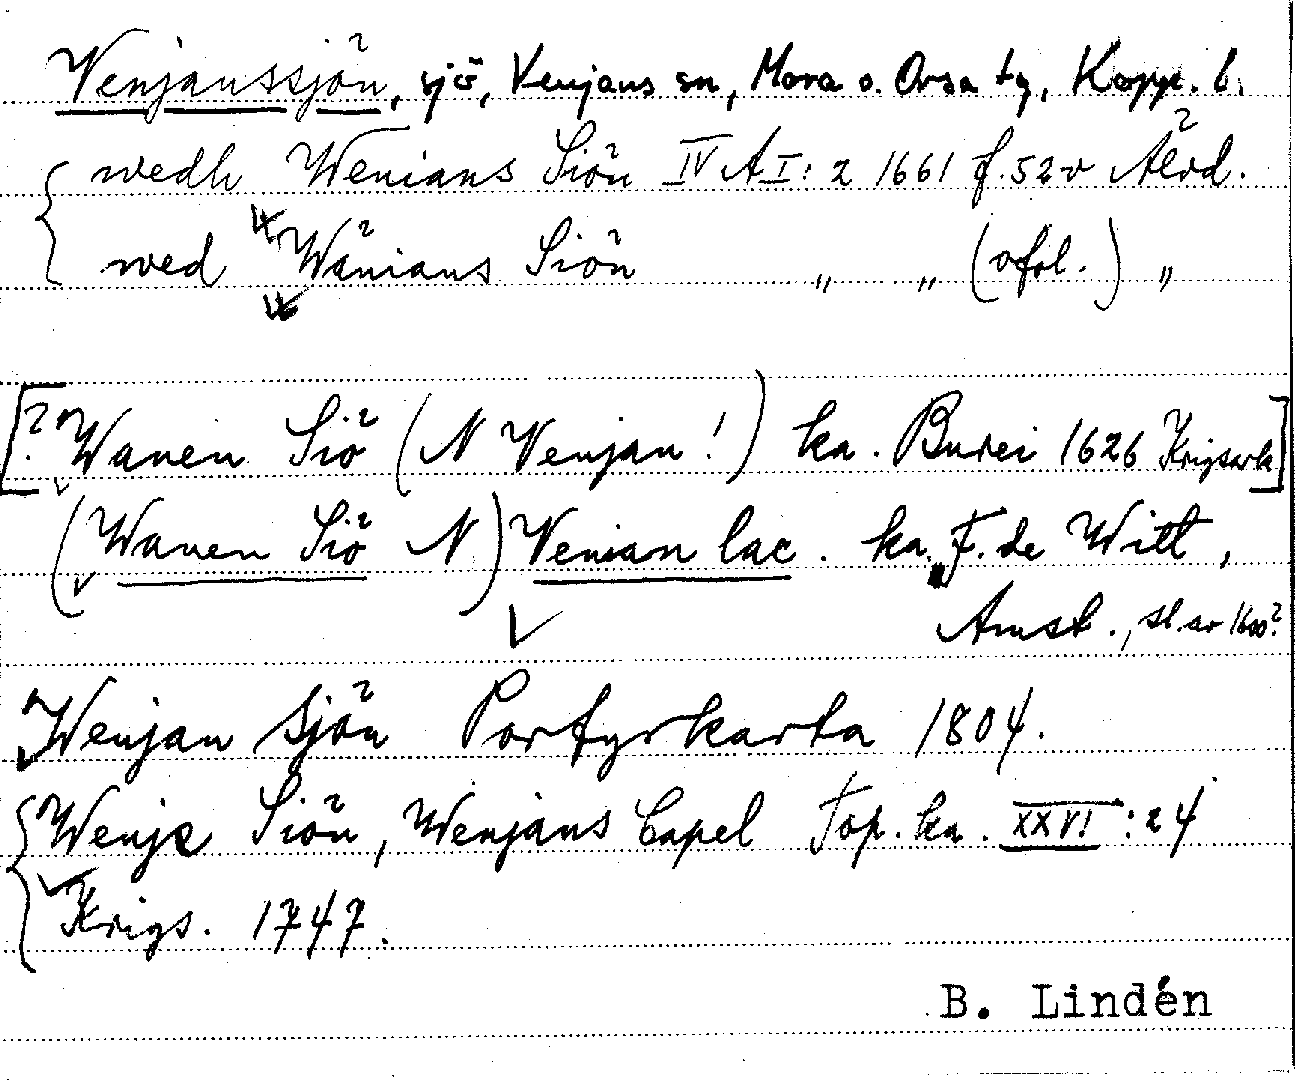 Venjanssjön, sjö, Venjans sn, Mora o. Orsa tg, Kopp. l.
wedh Wenians Siön IV A I: 2 1661 f. 52 v Älvd.
wed Wänians Siön " " (ofvl.) "
[? Wanen Siö (N Venjan!) ka. Burei 1626 Krigsark]
(Wanen Siö N) Venian lac. ka. F. de Witt,
Amst., sl. av 1600?
Wenjan sjön Porfyrkarta 1804.
Wenje Siön, Wenjans Capel Top. ka. XXVI: 24
Krigs. 1747.
B. Lindén